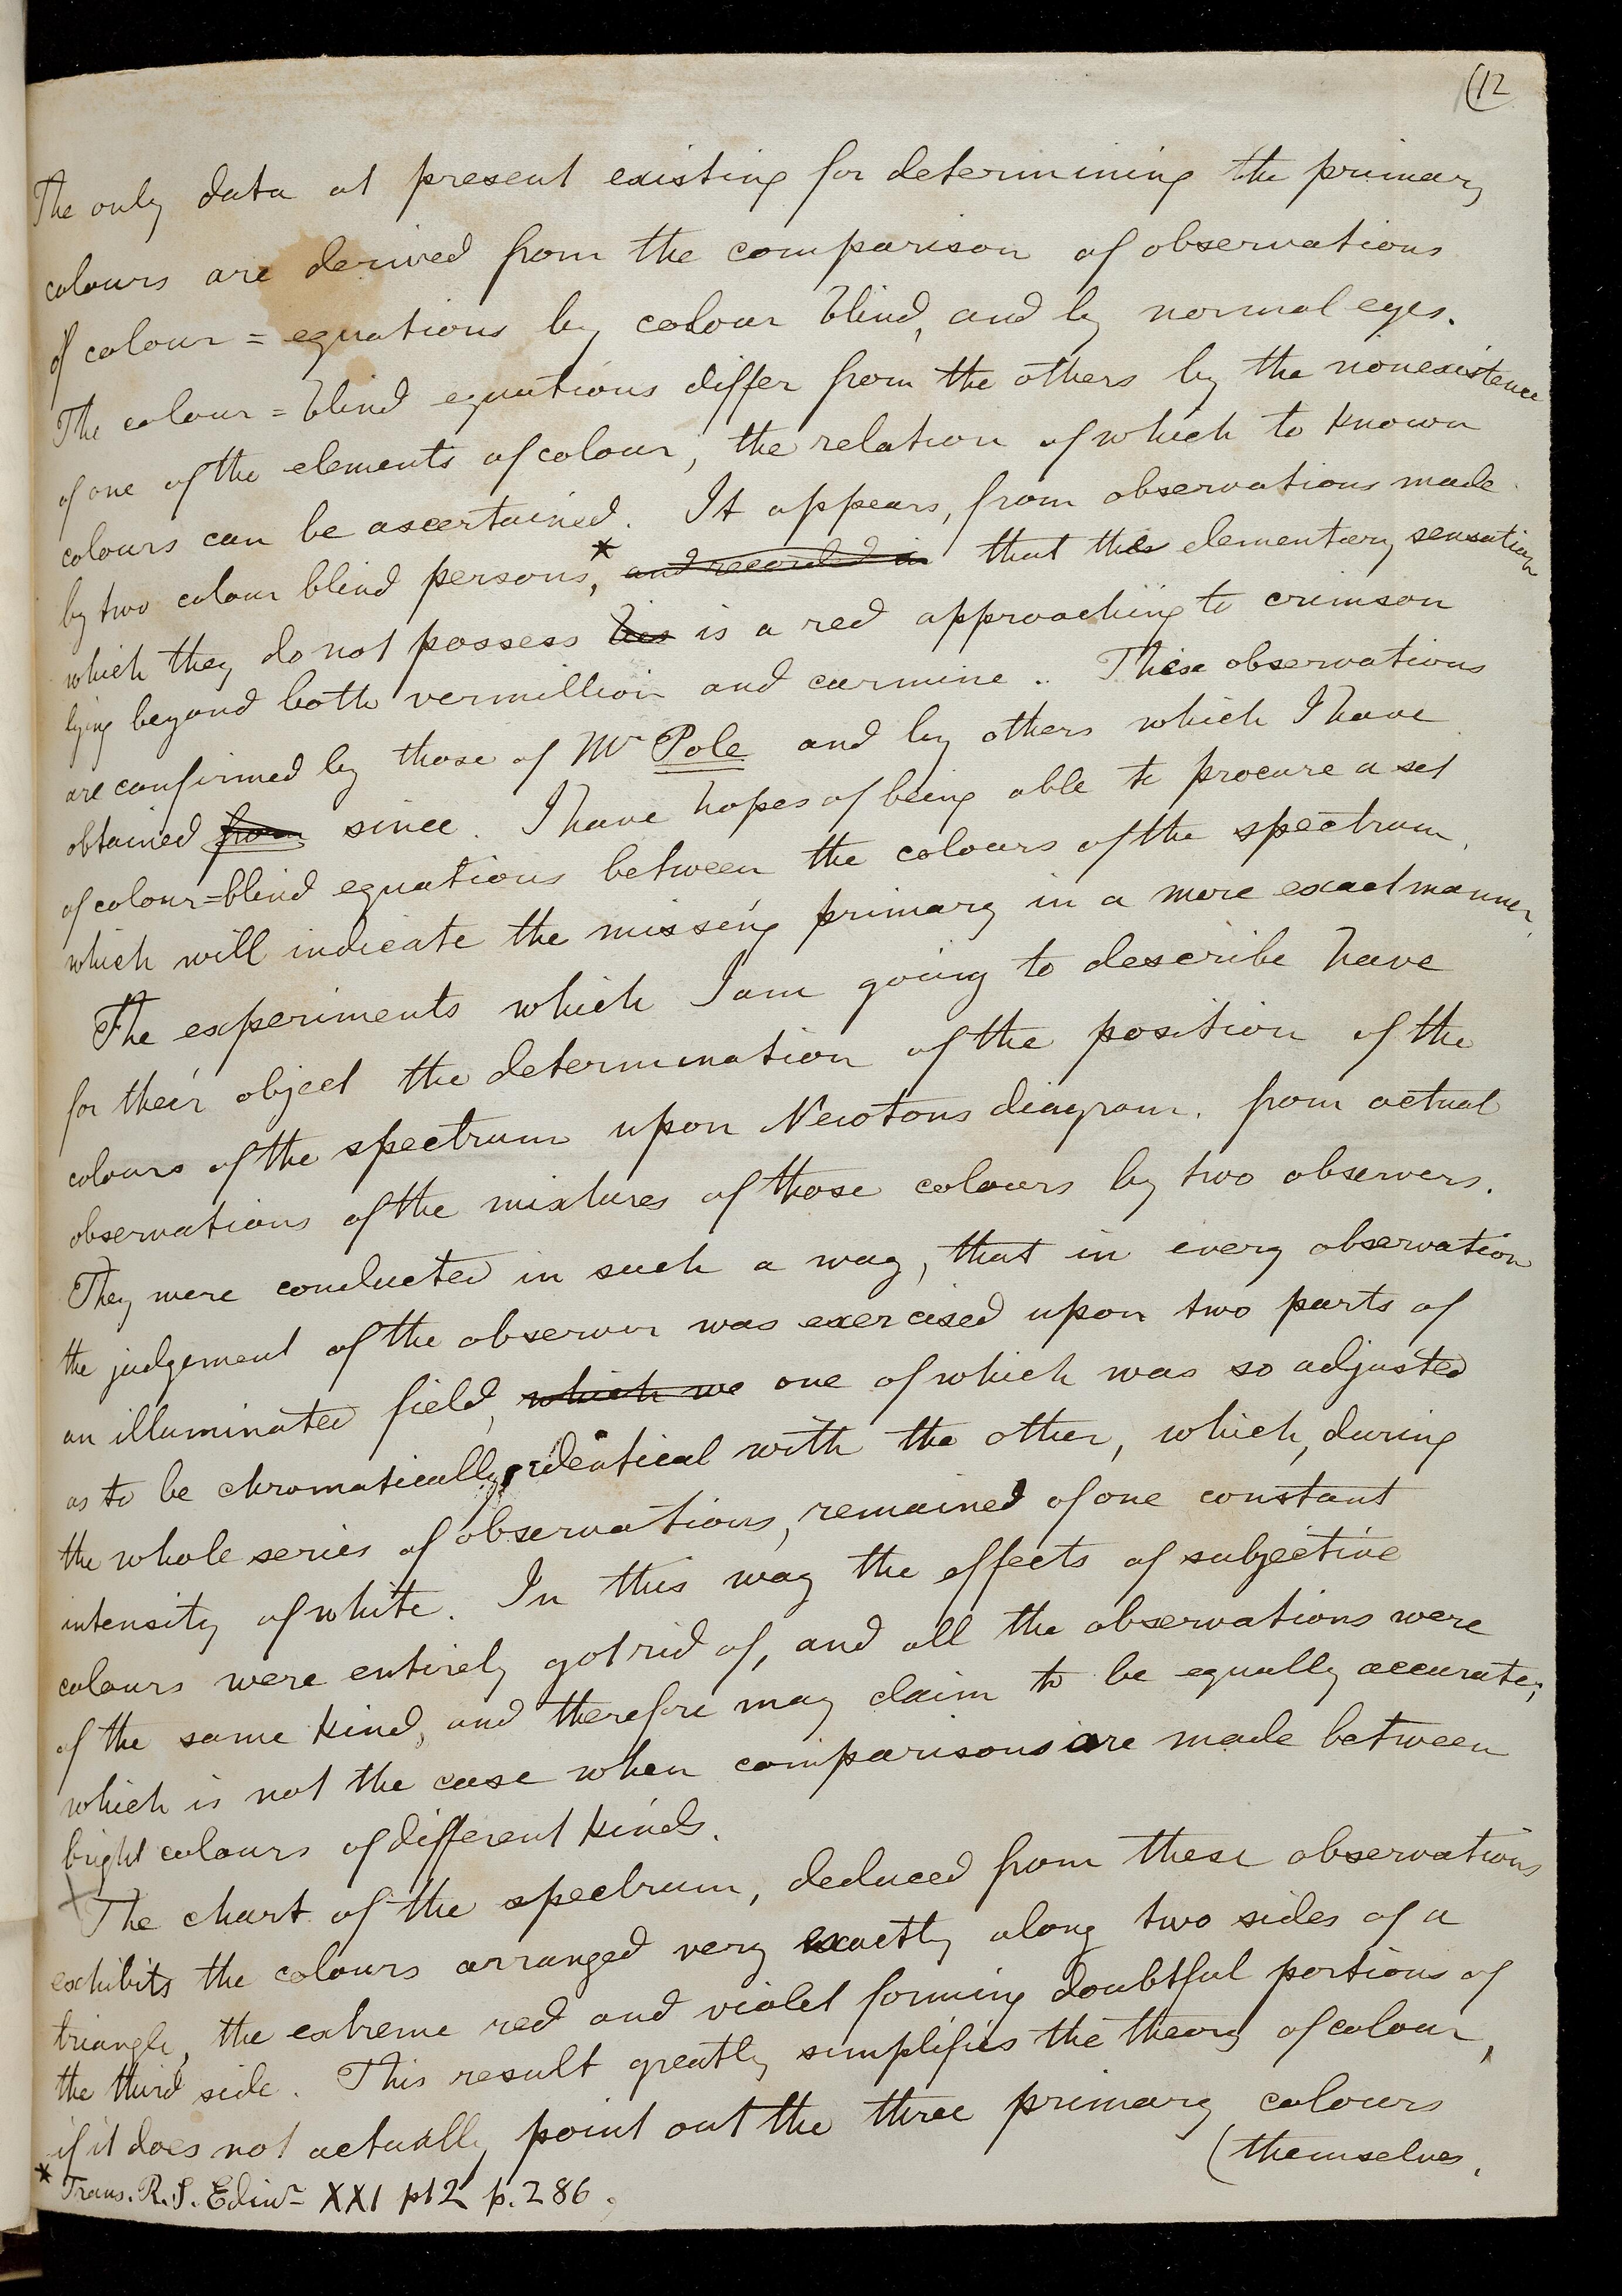 (12
The only data at present existing for determining the primary
colours are derived from the comparison of observations
of colour = equations by colour blind, and by normal eyes.
The colour = blind equations differ from the others by the nonexistence
of one of the elements of colour, the relation of which to known
colours can be ascertained. It appears, from observations made
by two colour blind persons,* and recorded in that the elementary sensation
which they do not possess lies is a red approaching to crimson
lying beyond both vermillion and carmine.. These observations
are confirmed by those of Mr Pole and by others which I have
obtained from since. I have hopes of being able to procure a set
of colour=blind equations between the colours of the spectrum,
which will indicate the missing primary in a more exact manner.
The experiments which I am going to describe have
for their object the determination of the position of the
colours of the spectrum upon Newtons diagram. from actual
observations of the mixtures of those colours by two observers.
They were conducted in such a way, that in every observation
the judgement of the observer was exercised upon two parts of
an illuminated field, which we one of which was so adjusted
as to be chromatically identical with the other, which, during
the whole series of observations, remained of one constant
intensity of white. In this way the effects of subjective
colours were entirely got rid of, and all the observations were
of the same kind, and therefore may claim to be equally accurate;
which is not the case when comparisons are made between
bright colours of different kinds.
The chart of the spectrum, deduced from these observations
exhibits the colours arranged very exactly along two sides of a
triangle, the extreme red and violet forming doubtful portions of
the third side. This result greatly simplifies the theory of colour,
if it does not actually point out the three primary colours
(themselves.
* Trans. R. S. Edinr XXI pt 2 p. 286.